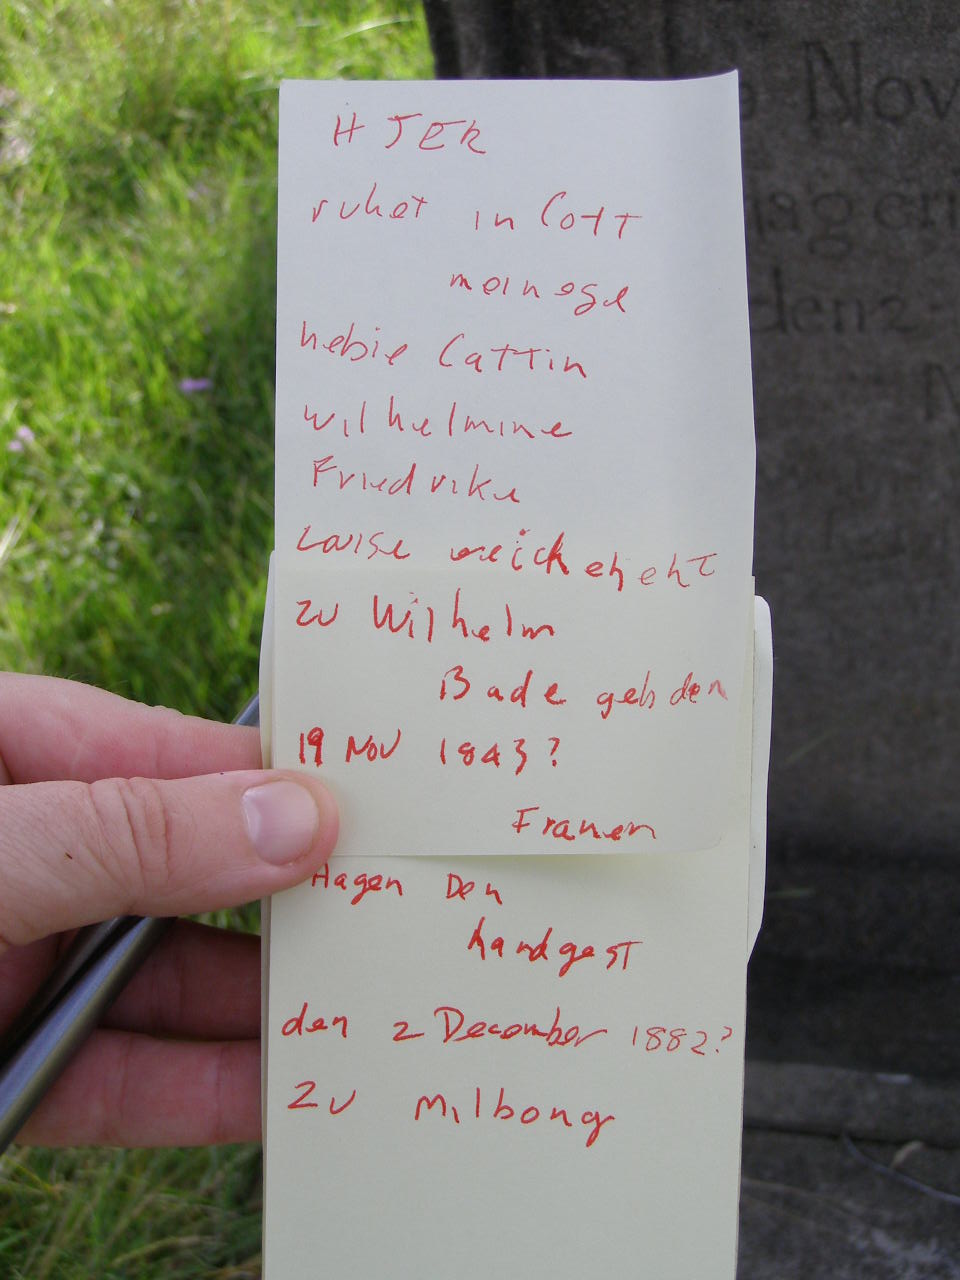 HIER
ruhet in Cott
meinege
hebie Cattin
wilhelmine
Friedrike
Louise weickeheht
zu Wilhelm
Bade geb den
19 Nov 1843?
Franen
Hagen Den
handgest
den 2 December 1882?
Zu Milbong
Nov
hagen
den 2